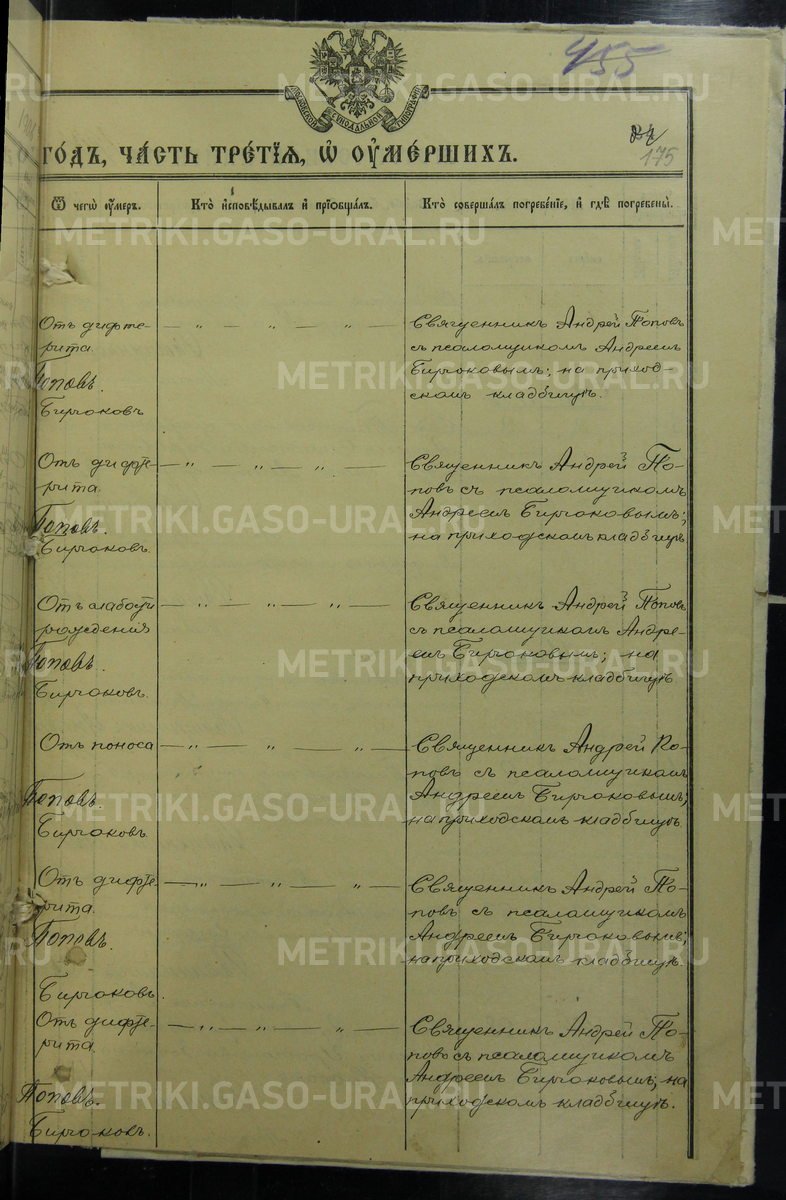 455
175
МОСКОВСКОЙ СѴНОДАЛЬНОЙ ТИПОГРАФІИ
ГО́ДЪ, ЧА́СТЬ ТРЕ́ТІѦ, Ѡ҆ ОУ҆МЕ́РШИХЪ.
Ѿ чегѡ̀ ᲂу҆́меръ.
Кто̀ и҆сповѣ́дывалъ и҆ прїѻбща́лъ.
Кто̀ соверша́лъ погребе́нїе, и҆ гдѣ̀ погребены̀.
Отъ дифте-
рита.
Поповъ.
Бирюковъ
— „ — „ — „ —
Священникъ Андрей Поповъ
съ псаломщикомъ Андреем
Бирюковымъ; на приход-
скомъ кладбищѣ.
Отъ дифте-
рита.
Поповъ.
Бирюковъ.
— „ — „ — „ —
Священникъ Андрей По-
повъ съ псаломщикомъ
Андреем Бирюковымъ;
на приходскомъ кладбищѣ
Отъ слабости
рождения
Поповъ.
Бирюковъ.
— „ — „ — „ —
Священникъ Андрей Поповъ
съ псаломщикомъ Андре-
ем Бирюковымъ; на
приходскомъ кладбищѣ
Отъ поноса
Поповъ.
Бирюковъ.
— „ — „ — „ —
Священникъ Андрей По-
повъ съ псаломщикомъ
Андреем Бирюковымъ;
на приходскомъ кладбищѣ.
Отъ дифте-
рита.
Поповъ.
Бирюковъ.
— „ — „ — „ —
Священникъ Андрей По-
повъ съ псаломщикомъ
Андреем Бирюковымъ;
на приходскомъ кладбищѣ.
Отъ дифте-
рита.
Поповъ.
Бирюковъ.
— „ — „ — „ —
Священникъ Андрей По-
повъ съ псаломщикомъ
Андреем Бирюковымъ, на
приходскомъ кладбищѣ.
METRIKI.GASO-URAL.RU